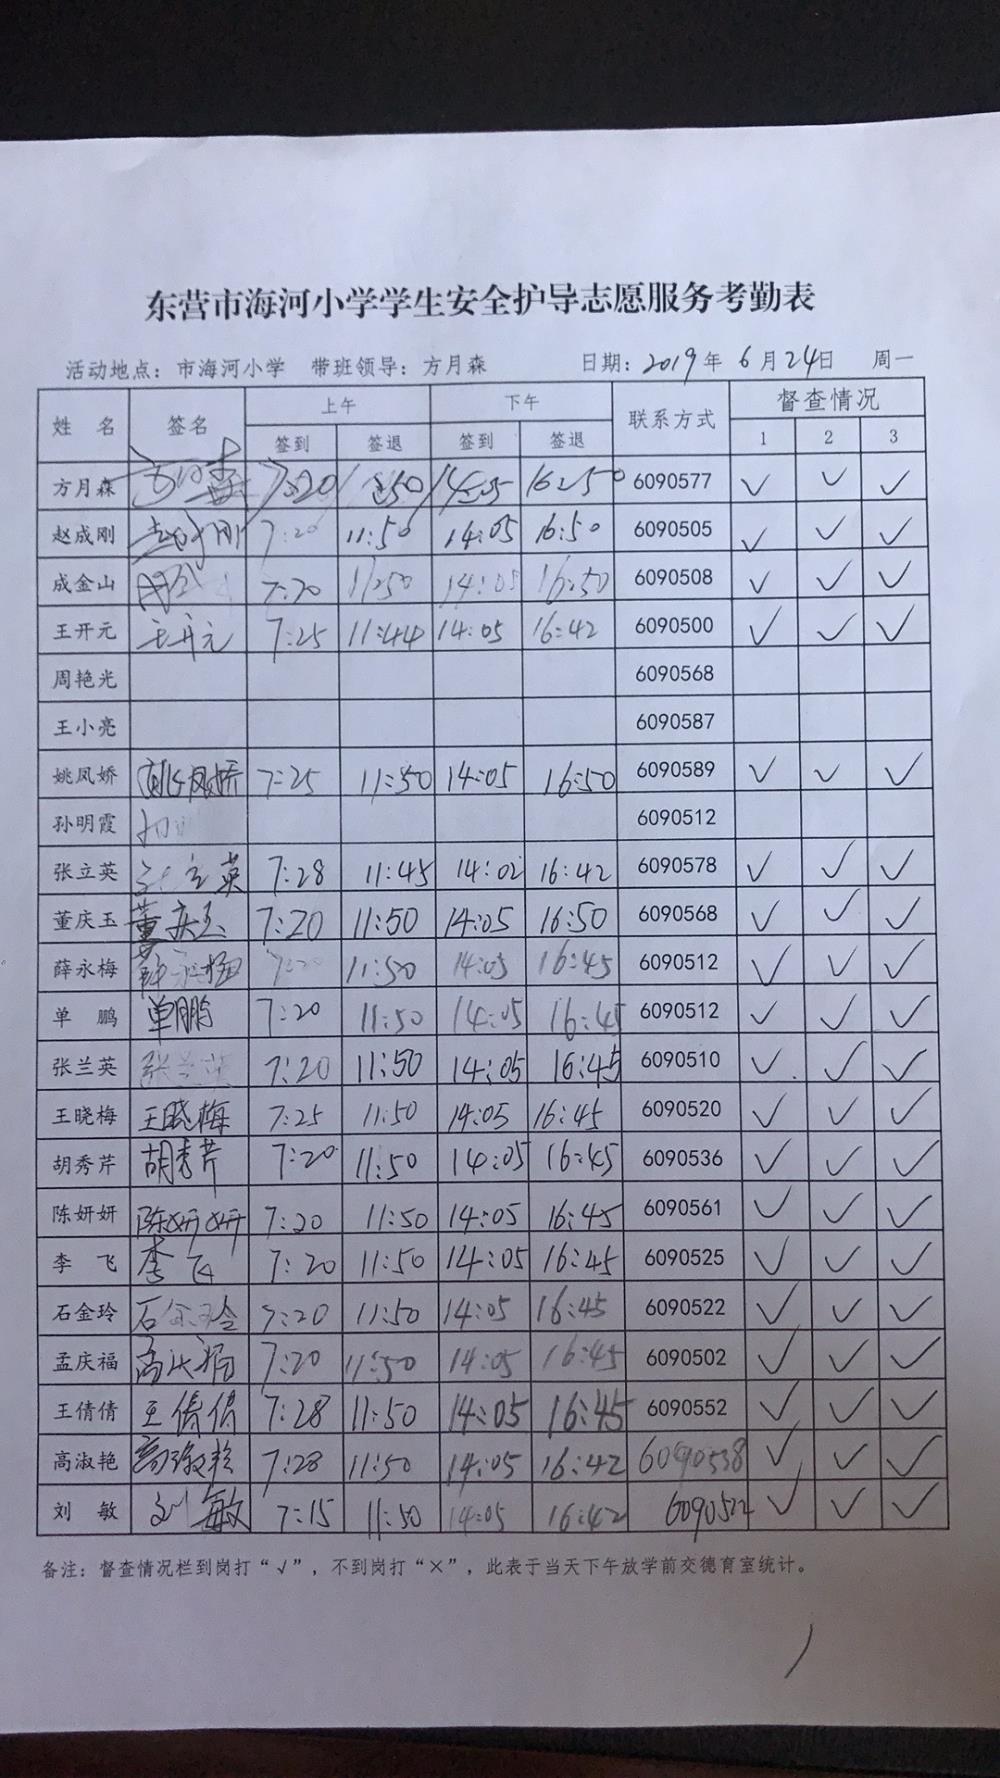 东营市海河小学学生安全护导志愿服务考勤表
活动地点：市海河小学 带班领导：方月森 日期：2019年6月24日 周一
姓 名 签名 上午 下午 联系方式 督查情况
签到 签退 签到 签退 1 2 3
方月森 7:20 11:50 14:05 16:50 6090577 ✓ ✓ ✓
赵成刚 赵成刚 7:20 11:50 14:05 16:50 6090505 ✓ ✓ ✓
成金山 7:20 11:50 14:05 16:50 6090508 ✓ ✓ ✓
王开元 王开元 7:25 11:44 14:05 16:42 6090500 ✓ ✓ ✓
周艳光 6090568
王小亮 6090587
姚凤娇 姚凤娇 7:25 11:50 14:05 16:50 6090589 ✓ ✓ ✓
孙明霞 6090512
张立英 张立英 7:28 11:45 14:02 16:42 6090578 ✓ ✓ ✓
董庆玉 董庆玉 7:20 11:50 14:05 16:50 6090568 ✓ ✓ ✓
薛永梅 薛永梅 7:20 11:50 14:05 16:45 6090512 ✓ ✓ ✓
单 鹏 单鹏 7:20 11:50 14:05 16:45 6090512 ✓ ✓ ✓
张兰英 张兰英 7:20 11:50 14:05 16:45 6090510 ✓ ✓ ✓
王晓梅 王晓梅 7:25 11:50 14:05 16:45 6090520 ✓ ✓ ✓
胡秀芹 胡秀芹 7:20 11:50 14:05 16:45 6090536 ✓ ✓ ✓
陈妍妍 陈妍妍 7:20 11:50 14:05 16:45 6090561 ✓ ✓ ✓
李 飞 李飞 7:20 11:50 14:05 16:45 6090525 ✓ ✓ ✓
石金玲 石金玲 7:20 11:50 14:05 16:45 6090522 ✓ ✓ ✓
孟庆福 7:20 11:50 14:05 16:45 6090502 ✓ ✓ ✓
王倩倩 王倩倩 7:28 11:50 14:05 16:45 6090552 ✓ ✓ ✓
高淑艳 高淑艳 7:28 11:50 14:05 16:42 6090538 ✓ ✓ ✓
刘 敏 刘敏 7:15 11:50 14:05 16:42 6090522 ✓ ✓ ✓
备注：督查情况栏到岗打“√”，不到岗打“×”，此表于当天下午放学前交德育室统计。